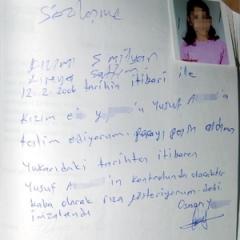 Sözleşme
KIZIMI 5 milyon
Liraya sattım
12-2-2006 tarihin itibari ile
Kızım e y 'ü Yusuf A
teslim ediyorum. parayı peşin aldım
Yukarıdaki tarihten itibaren
Yusuf A 'in kontrolunda olacaktır
baba olarak rıza gösteriyorum.
imzalandı Osman Y